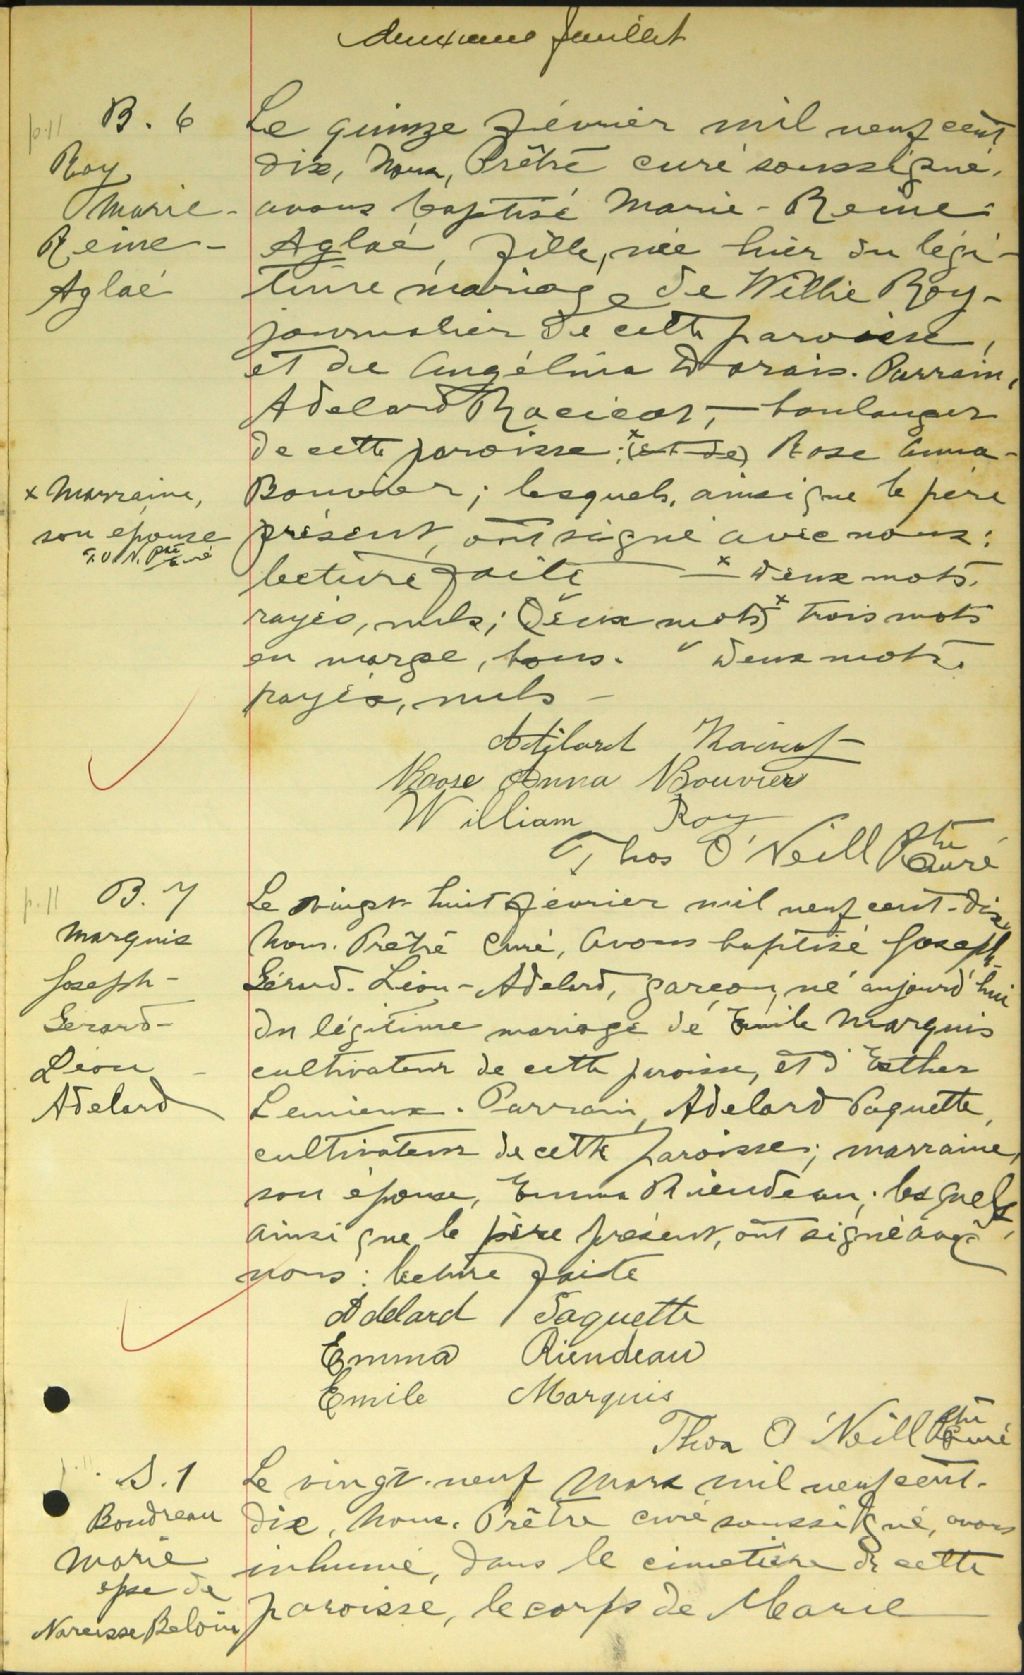 deuxième feuillet
p.11
B. 6
Roy
Marie-
Reine-
Aglaé
Le quinze février mil neuf cent
dix, Nous, Prêtre curé soussigné,
avons baptisé Marie-Reine-
Aglaé, fille, née hier du légi-
time mariage de Willie Roy-
journalier de cette paroisse,
et de Angélina Darais. Parrain,
Adelard Racicot,- boulanger
de cette paroisse; x(et de) Rose Anna-
Bouvier; lesquels, ainsi que le père
présent, ont signé avec nous:
lecture faite — x deux mots
rayés, nuls; (Deux mots) x trois mots
en marge, bons. " deux mots
rayés, nuls -
x Marraine,
son épouse
T. O'N. Ptre Curé
Adjlard Racicot
Roose Anna Bouvier
William Roy
Thos O'Neill Ptre Curé
p.11
B. 7
Marquis
Joseph-
Gérard-
Léon -
Adelard
Le vingt-huit février mil neuf cent-dix,
Nous. Prêtre Curé, avons baptisé Joseph-
Gérard-Léon-Adelard, garçon, né aujourd'hui
du légitime mariage de Emile Marquis
cultivateur de cette paroisse, et d'Esther
Lemieux. Parrain, Adelard Paquette,
cultivateur de cette paroisse; marraine,
son épouse, Emma Riendeau; lesquels,
ainsi que le père présent, ont signé avec
nous: lecture faite
Adelard Paquette
Emma Riendeau
Emile Marquis
Thos O'Neill Ptre Curé
S. 1
Boudreau
Marie
epse de
Narcisse Beloin
Le vingt-neuf Mars mil neuf cent-
dix, Nous, Prêtre curé soussigné, avons
inhumé, dans le cimetière de cette
paroisse, le corps de Marie